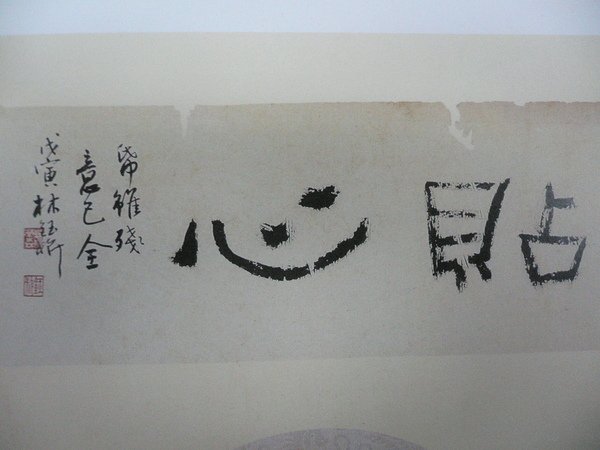 貼心
帋雖殘
意已全
戊寅林